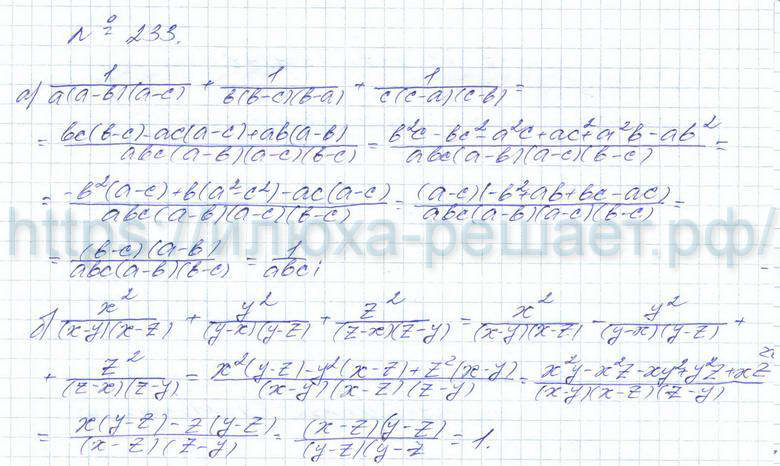 № 233.
а) 1/(a(a-b)(a-c)) + 1/(b(b-c)(b-a)) + 1/(c(c-a)(c-b)) =
= (bc(b-c)-ac(a-c)+ab(a-b))/(abc(a-b)(a-c)(b-c)) = (b²c-bc²-a²c+ac²+a²b-ab²)/(abc(a-b)(a-c)(b-c)) =
= (-b²(a-c)+b(a²-c²)-ac(a-c))/(abc(a-b)(a-c)(b-c)) = ((a-c)(-b²+ab+bc-ac))/(abc(a-b)(a-c)(b-c)) =
https://илюха-решает.рф/
= ((b-c)(a-b))/(abc(a-b)(b-c)) = 1/abc;
б) x²/((x-y)(x-z)) + y²/((y-x)(y-z)) + z²/((z-x)(z-y)) = x²/((x-y)(x-z)) - y²/((y-x)(y-z)) +
+ z²/((z-x)(z-y)) = (x²(y-z)-y²(x-z)+z²(x-y))/((x-y)(x-z)(z-y)) = (x²y-x²z-xy²+y²z+xz²)/((x-y)(x-z)(z-y))
= (x(y-z)-z(y-z))/((x-z)(z-y)) = ((x-z)(y-z))/((y-z)(y-z = 1.